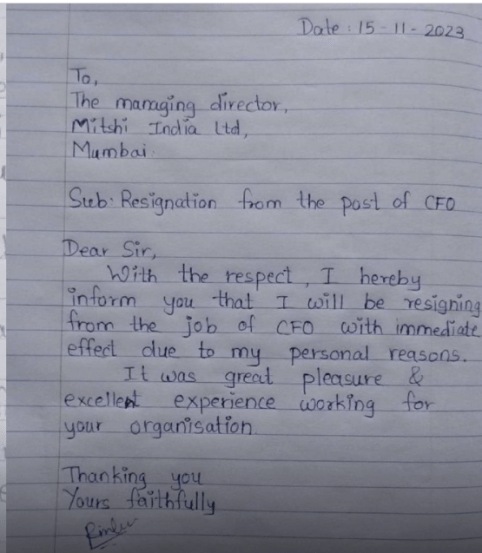 Date : 15 - 11 - 2023
To,
The managing director,
Mitshi India Ltd,
Mumbai.
Sub: Resignation from the post of CFO
Dear Sir,
With the respect, I hereby
inform you that I will be resigning
from the job of CFO with immediate
effect due to my personal reasons.
It was great pleasure &
excellent experience working for
your organisation.
Thanking you
Yours faithfully